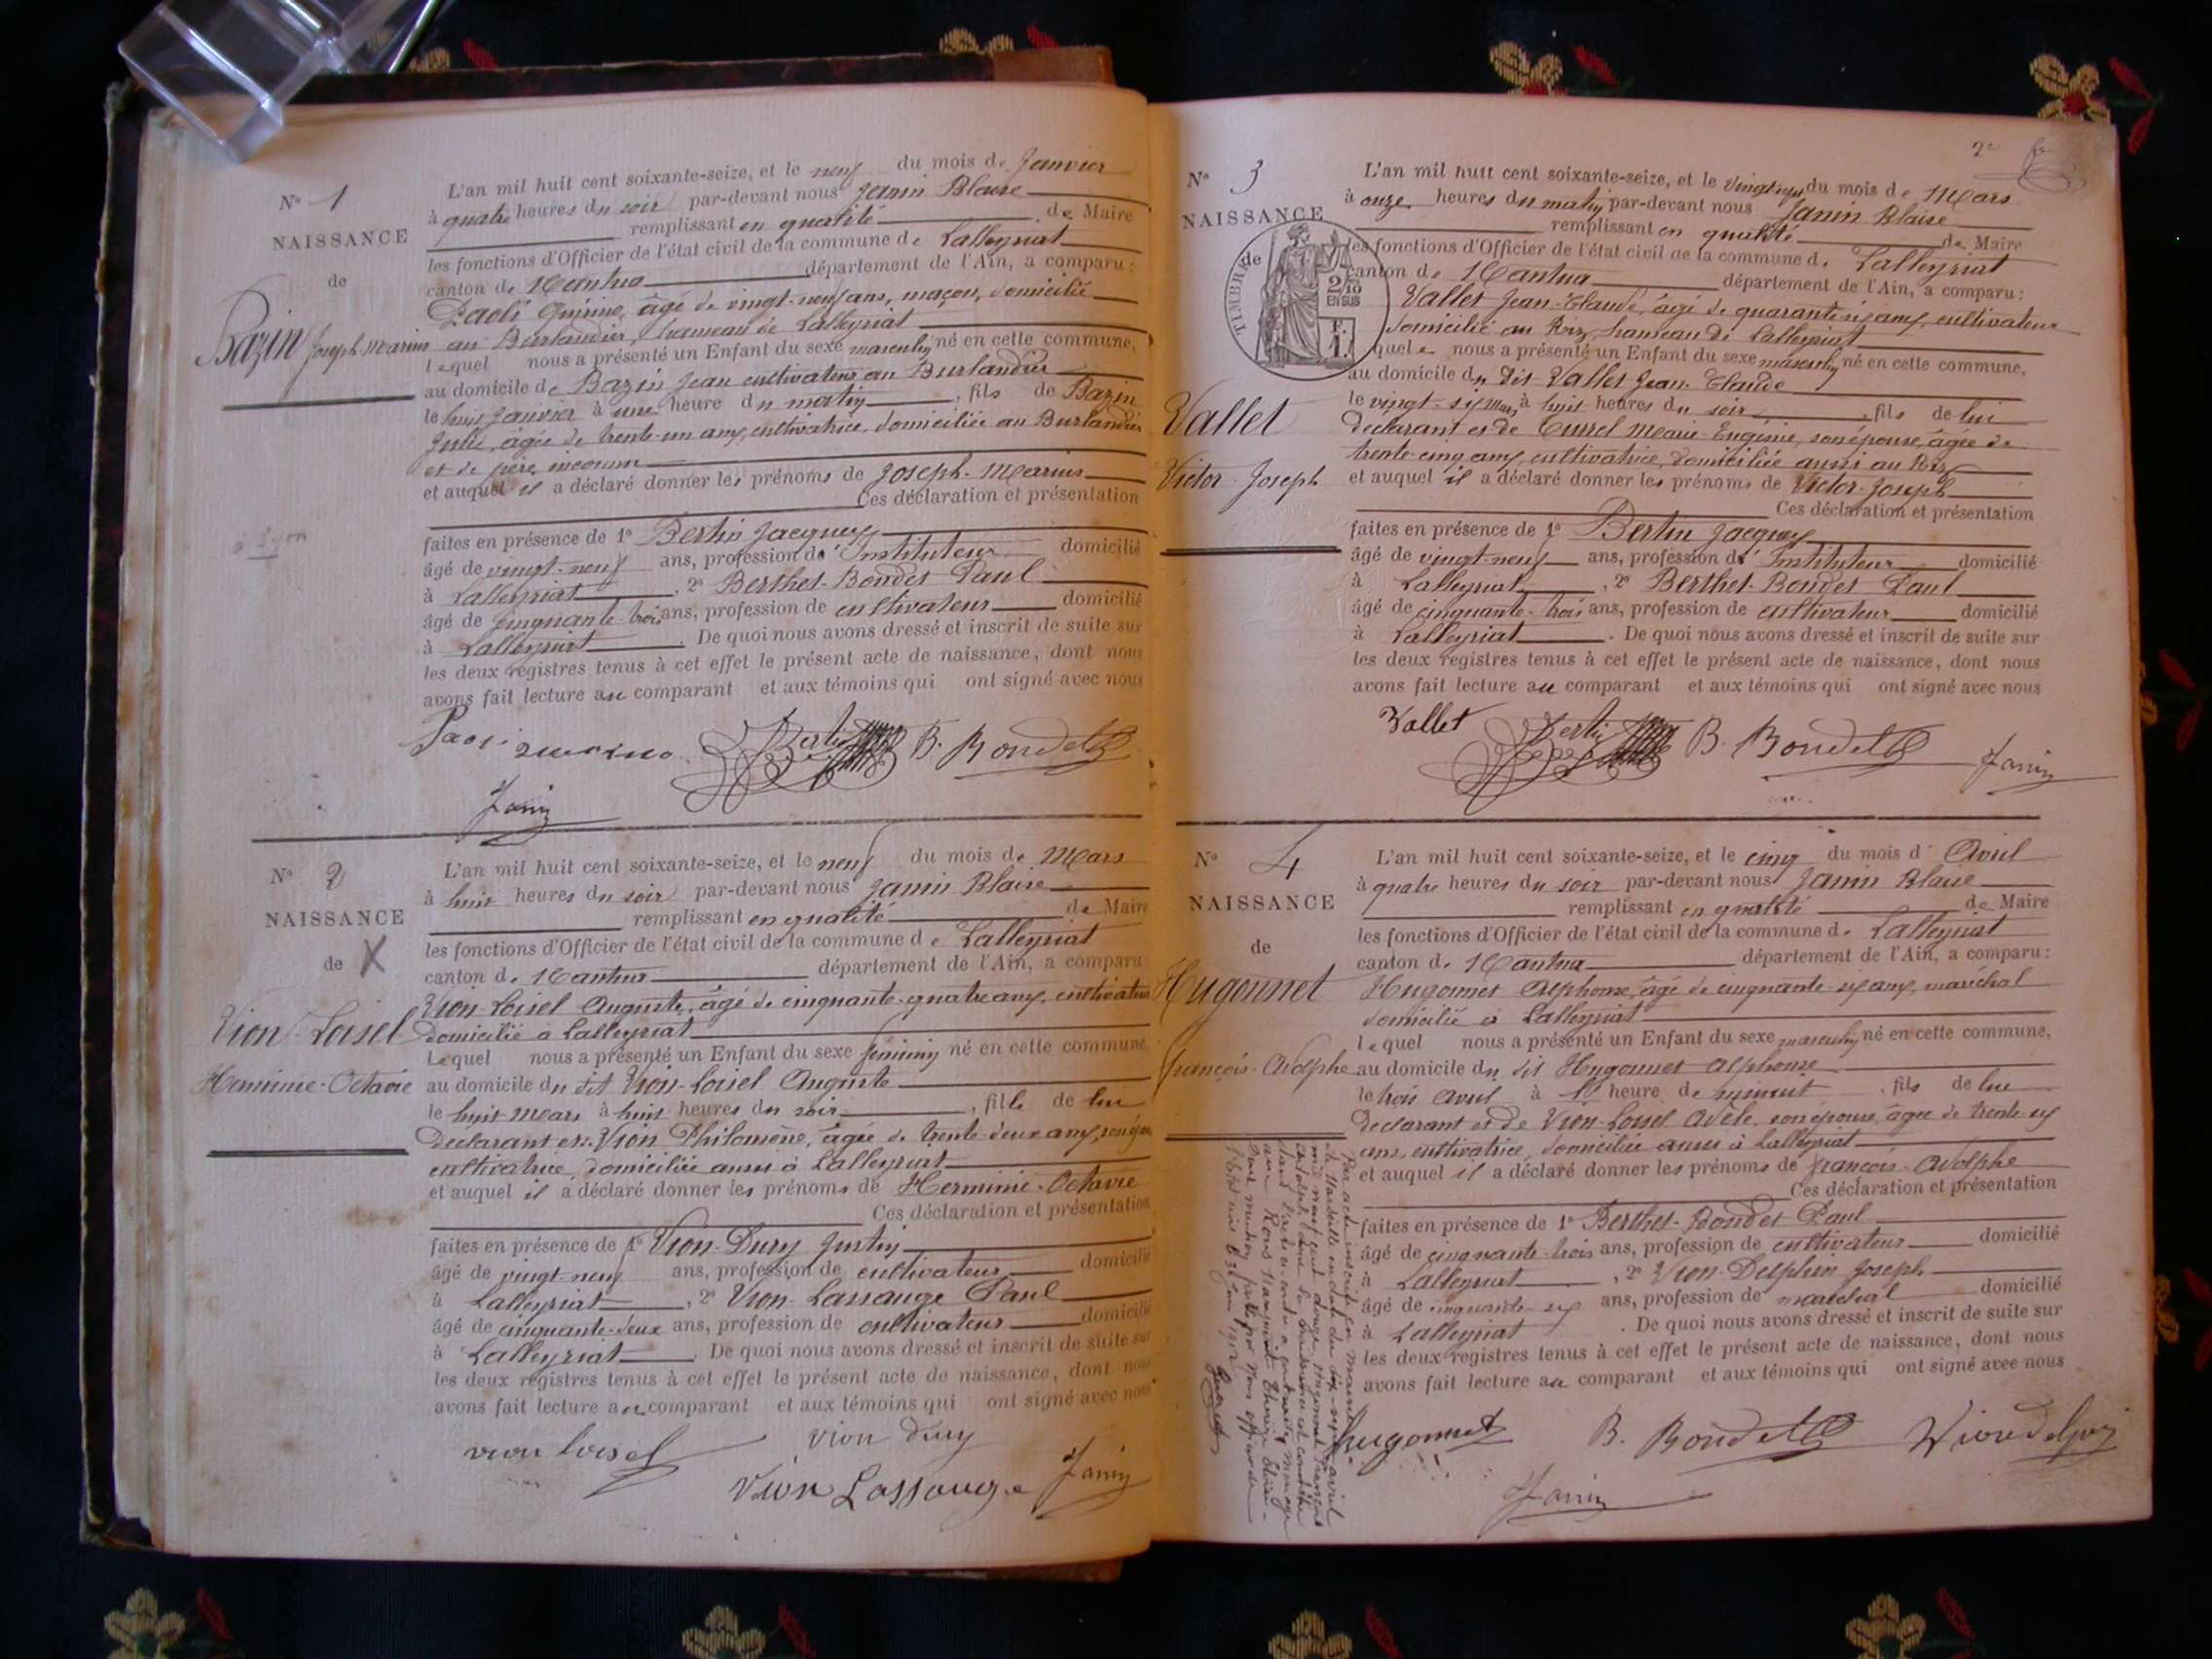 N° 1
NAISSANCE
de
Bazin Joseph Marius
à Lyon
L'an mil huit cent soixante-seize, et le neuf du mois de Janvier
à quatre heures du soir par-devant nous Janin Blaise
remplissant en qualité de Maire
les fonctions d'Officier de l'état civil de la commune de Lalleyriat
canton de Nantua département de l'Ain, a comparu :
Paoli Quirino, âgé de vingt-neuf ans, maçon, domicilié
au Burlandier, hameau de Lalleyriat
lequel nous a présenté un Enfant du sexe masculin né en cette commune,
au domicile de Bazin Jean cultivateur au Burlandier
le huit Janvier à une heure du matin, fils de Bazin
Julie, âgée de trente-un ans, cultivatrice, domiciliée au Burlandier
et de père inconnu
et auquel il a déclaré donner les prénoms de Joseph-Marius
Ces déclaration et présentation
faites en présence de 1° Bertin Jacques
âgé de vingt-neuf ans, profession d'Instituteur domicilié
à Lalleyriat, 2° Berthet-Bondet Paul
âgé de cinquante-trois ans, profession de cultivateur domicilié
à Lalleyriat. De quoi nous avons dressé et inscrit de suite sur
les deux registres tenus à cet effet le présent acte de naissance, dont nous
avons fait lecture au comparant et aux témoins qui ont signé avec nous
Paoli Bertin B. Bondet
Janin
N° 2
NAISSANCE
de X
Vion-Loisel
Herminie-Octavie
L'an mil huit cent soixante-seize, et le neuf du mois de Mars
à huit heures du soir par-devant nous Janin Blaise
remplissant en qualité de Maire
les fonctions d'Officier de l'état civil de la commune de Lalleyriat
canton de Nantua département de l'Ain, a comparu :
Vion-Loisel Auguste, âgé de cinquante-quatre ans, cultivateur
domicilié à Lalleyriat
Lequel nous a présenté un Enfant du sexe féminin né en cette commune
au domicile du dit Vion-Loisel Auguste
le huit Mars à huit heures du soir, fille de lui
déclarant et de Vion Philomène, âgée de trente-deux ans, son épouse
cultivatrice, domiciliée aussi à Lalleyriat
et auquel il a déclaré donner les prénoms de Herminie-Octavie
Ces déclaration et présentation
faites en présence de 1° Vion-Dury Justin
âgé de vingt-neuf ans, profession de cultivateur domicilié
à Lalleyriat, 2° Vion-Lassauge Paul
âgé de cinquante-deux ans, profession de cultivateur domicilié
à Lalleyriat. De quoi nous avons dressé et inscrit de suite sur
les deux registres tenus à cet effet le présent acte de naissance, dont nous
avons fait lecture au comparant et aux témoins qui ont signé avec nous
vion loisel vion dury
Vion Lassauge Janin
2e
N° 3
NAISSANCE
de
TIMBRE
2/10
EN SUS
1 F.
Vallet
Victor-Joseph
L'an mil huit cent soixante-seize, et le vingt sept du mois de Mars
à onze heures du matin par-devant nous Janin Blaise
remplissant en qualité de Maire
les fonctions d'Officier de l'état civil de la commune de Lalleyriat
canton de Nantua département de l'Ain, a comparu :
Vallet Jean-Claude, âgé de quarante-six ans, cultivateur
domicilié au Roz, hameau de Lalleyriat
quel nous a présenté un Enfant du sexe masculin né en cette commune,
au domicile du dit Vallet Jean-Claude
le vingt-six mars à huit heures du soir, fils de lui
déclarant et de Currel Marie-Eugénie, son épouse, âgée de
trente-cinq ans, cultivatrice, domiciliée aussi au Roz
et auquel il a déclaré donner les prénoms de Victor-Joseph
Ces déclaration et présentation
faites en présence de 1° Bertin Jacques
âgé de vingt-neuf ans, profession d'Instituteur domicilié
à Lalleyriat, 2° Berthet-Bondet Paul
âgé de cinquante-trois ans, profession de cultivateur domicilié
à Lalleyriat. De quoi nous avons dressé et inscrit de suite sur
les deux registres tenus à cet effet le présent acte de naissance, dont nous
avons fait lecture au comparant et aux témoins qui ont signé avec nous
Vallet Bertin B. Bondet Janin
N° 4
NAISSANCE
de
Hugonnet
François-Adolphe
L'an mil huit cent soixante-seize, et le cinq du mois d'Avril
à quatre heures du soir par-devant nous Janin Blaise
remplissant en qualité de Maire
les fonctions d'Officier de l'état civil de la commune de Lalleyriat
canton de Nantua département de l'Ain, a comparu :
Hugonnet Alphonse, âgé de cinquante-six ans, maréchal
domicilié à Lalleyriat
lequel nous a présenté un Enfant du sexe masculin né en cette commune,
au domicile du dit Hugonnet Alphonse
le trois avril à heure de minuit, fils de lui
déclarant et de Vion-Loisel Adèle, son épouse, âgée de trente-six
ans, cultivatrice, domiciliée aussi à Lalleyriat
et auquel il a déclaré donner les prénoms de François-Adolphe
Ces déclaration et présentation
faites en présence de 1° Berthet-Bondet Paul
âgé de cinquante-trois ans, profession de cultivateur domicilié
à Lalleyriat, 2° Vion-Delphin Joseph
âgé de cinquante-six ans, profession de maréchal domicilié
à Lalleyriat. De quoi nous avons dressé et inscrit de suite sur
les deux registres tenus à cet effet le présent acte de naissance, dont nous
avons fait lecture au comparant et aux témoins qui ont signé avec nous
hugonnet B. Bondet Vion delphin
Janin
Par acte inscrit en mairie
de Marseille en date du dix-sept avril
mil neuf cent douze, Hugonnet François
Adolphe
dans l'acte ci-contre a contracté mariage
avec
Dont mention faite par nous